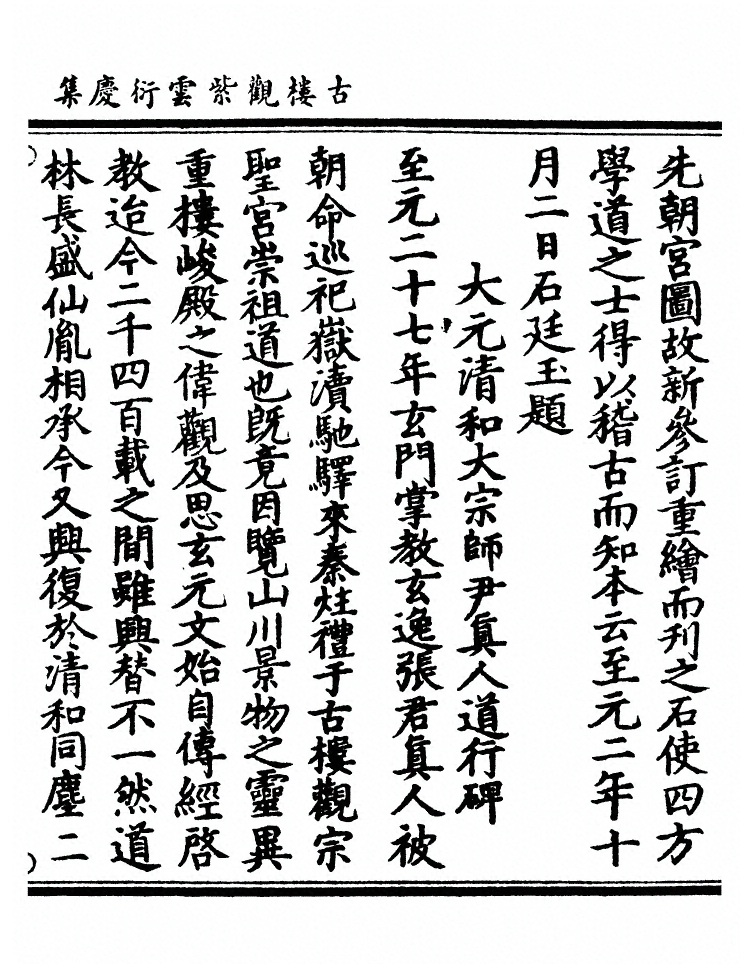 古樓觀紫雲衍慶集
先朝宮圖故新參訂重繪而刊之石使四方
學道之士得以稽古而知本云至元二年十
月二日石廷玉題
大元清和大宗師尹眞人道行碑
至元二十七年玄門掌教玄逸張君眞人被
朝命巡祀嶽瀆馳驛來秦炷禮于古樓觀宗
聖宮崇祖道也旣竟因覽山川景物之靈異
重樓峻殿之偉觀及思玄元文始自傳經啓
教迨今二千四百載之間雖興替不一然道
林長盛仙胤相承今又興復於清和同塵二